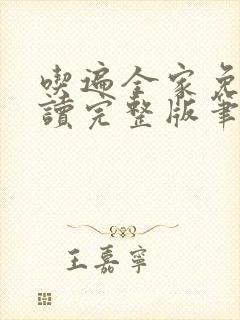 喫遍全家免
讀完整版筆
王嘉寧